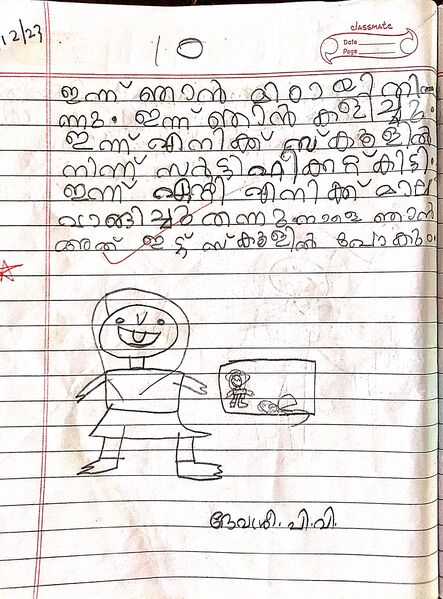 12/23
classmate
Date
Page
10
ഇന്ന് ഞാൻ മിഠായി തി
ന്നു. ഇന്ന് ഞാൻ കളിച്ചു.
ഇന്ന് എനിക്ക് സ്കൂളിൽ
നിന്ന് സർട്ടിഫിക്കറ്റ് കിട്ടി.
ഇന്ന് എനിക്ക് മാല
വാങ്ങിച്ചു തന്നു നാളെ ഞാൻ
അത് ഇട്ട് സ്കൂളിൽ പോകും.
ദേവശ്രീ. പി. വി.